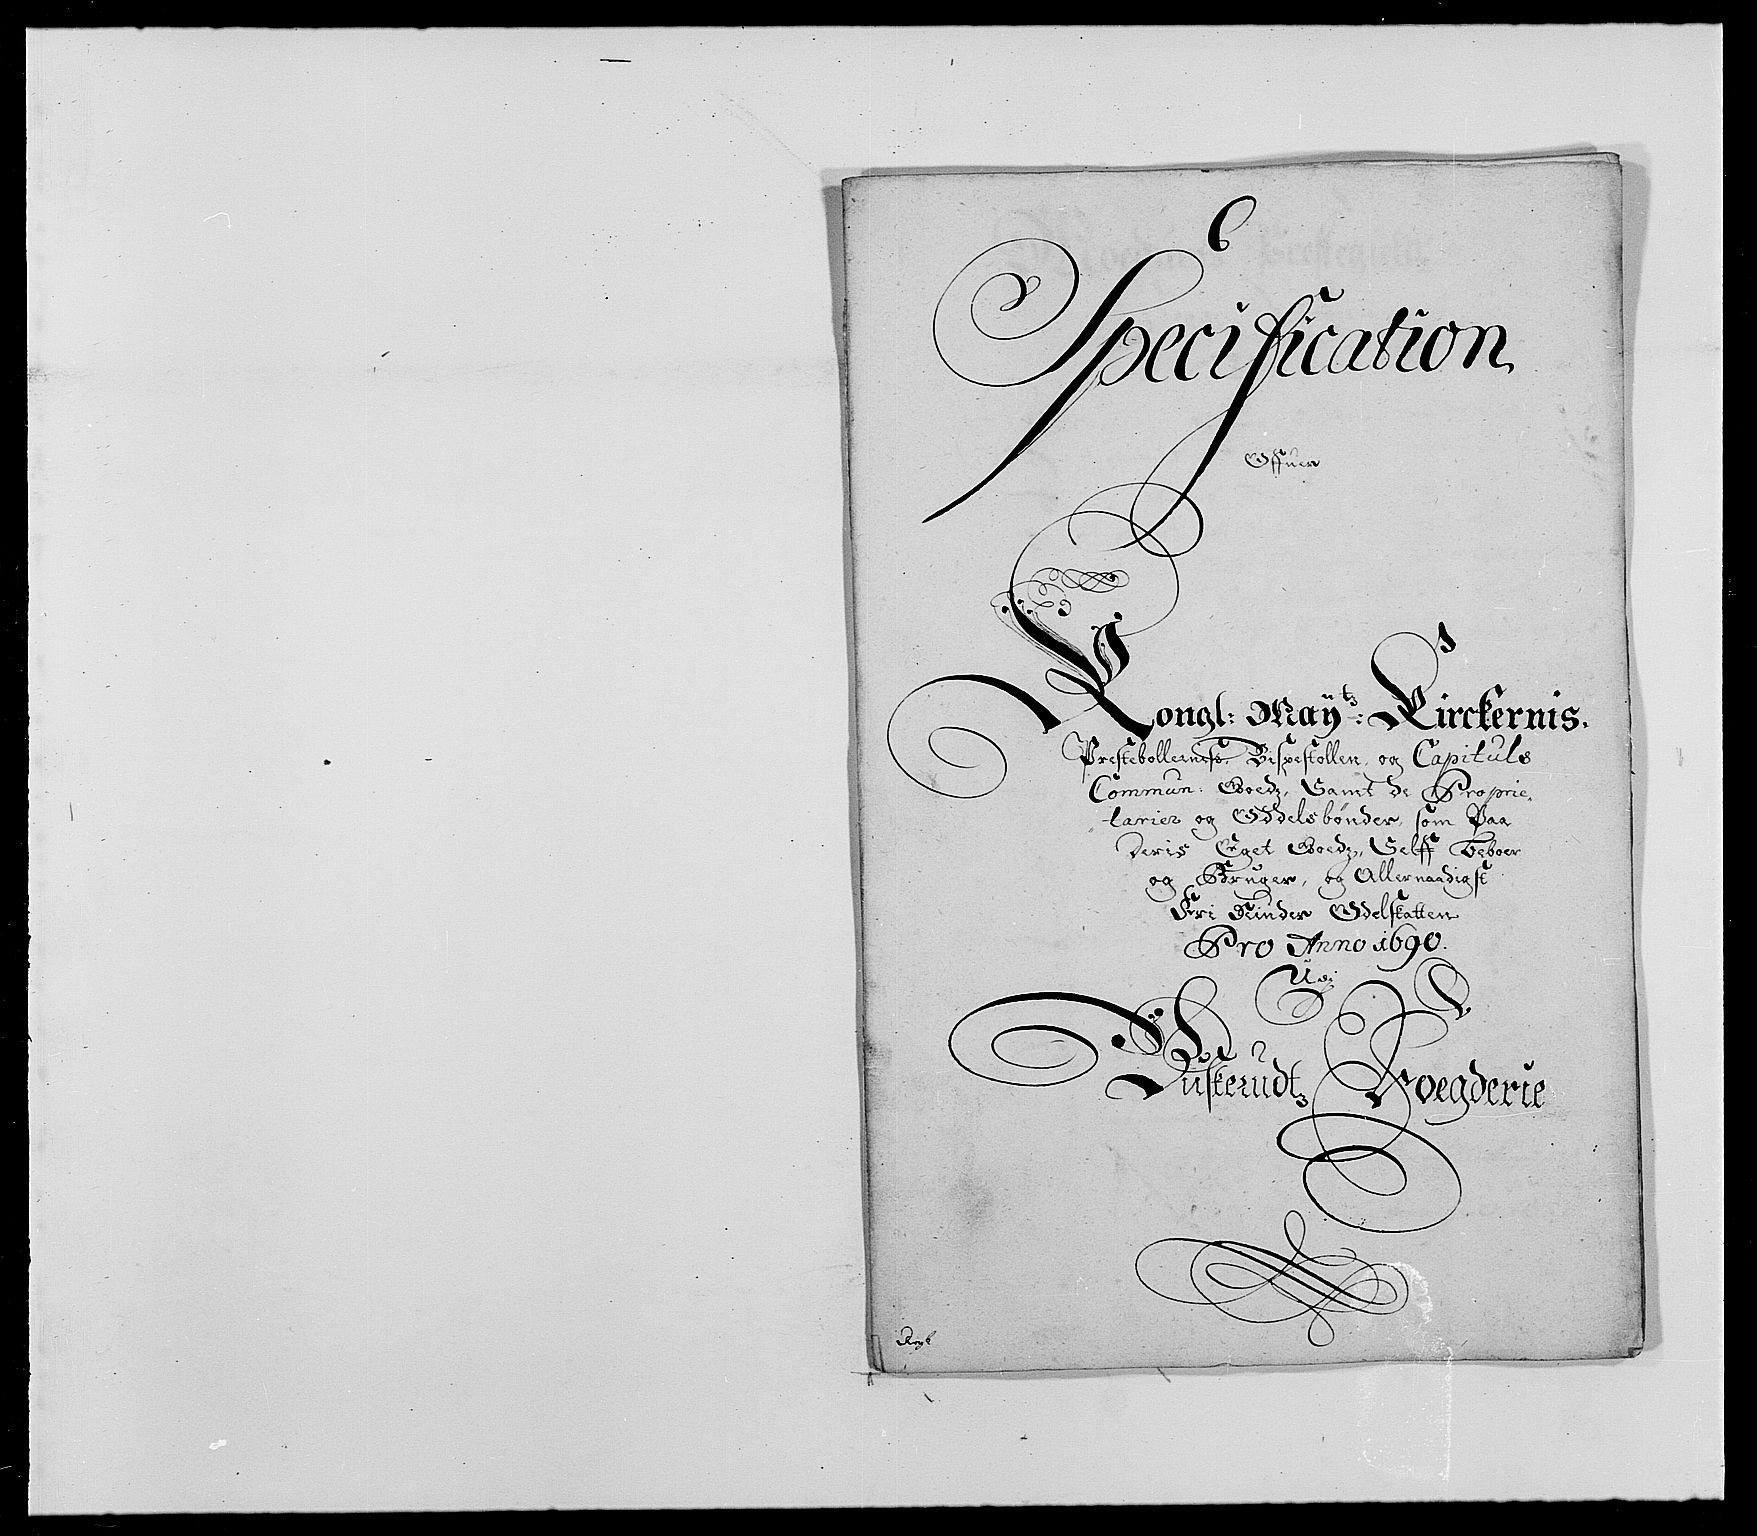 Specification
Offuer
Kongl: Maÿtz: Kirckernis.
Prestebollernes, Bispestollen, og Capituls
Commun: Goedz, Samt de Proprie,
tarier og Oddelsbønder, som Paa
Deris Eget Goedz, Selff Beboer
og Bruger, og Allernaadigst
Fri Kinder Odelskatten
Pro Anno 1690.
Udj
Buskerudtz Foegderie